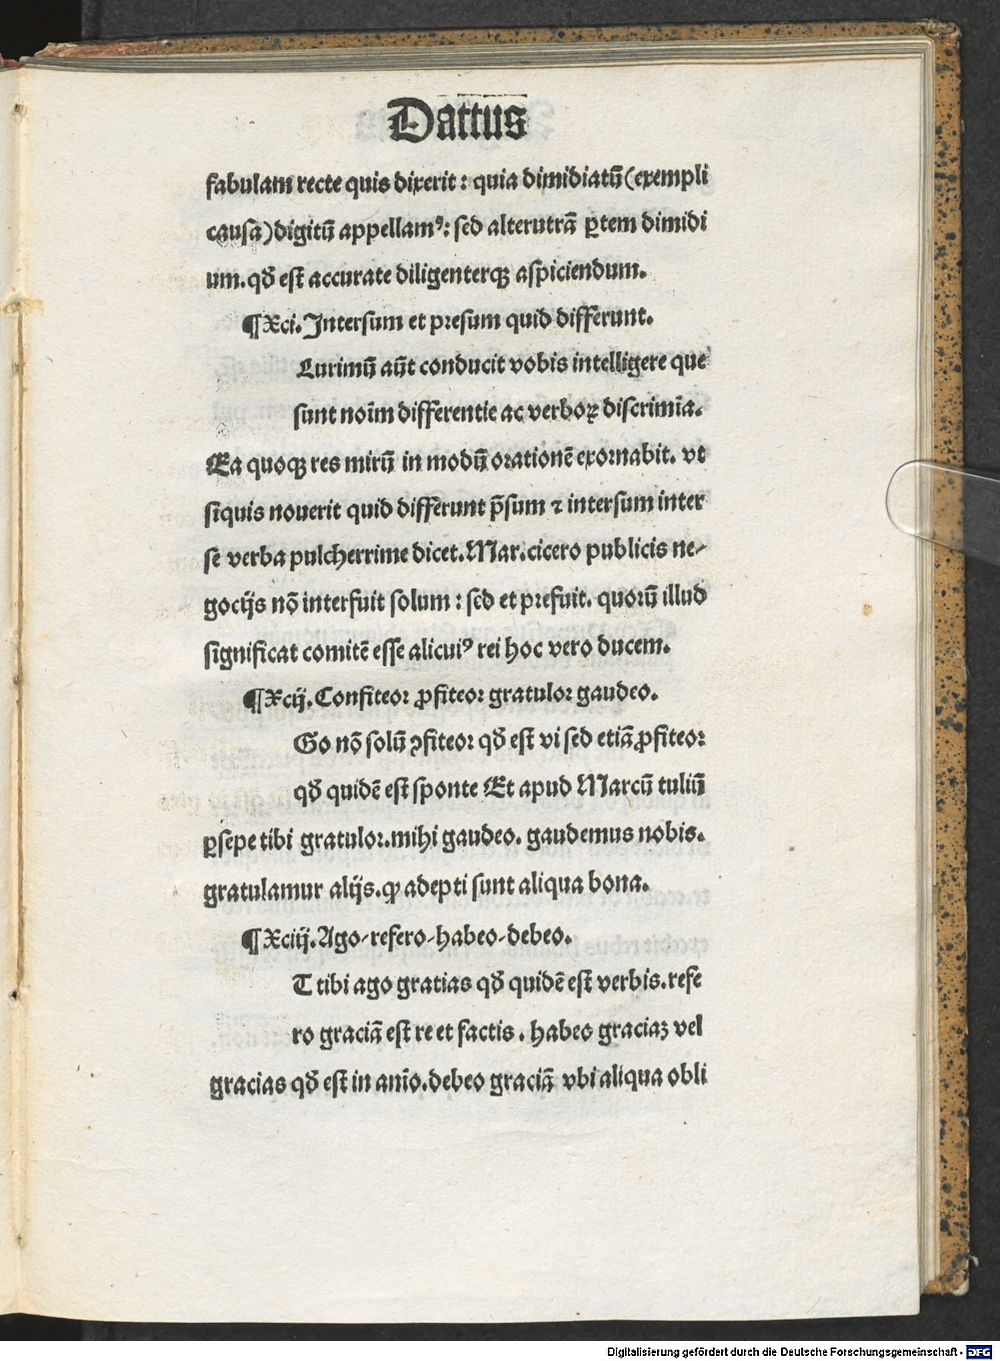 Dattus
fabulam recte quis dixerit: quia dimidiatū(exempli
causa)digitū appellamꝰ: sed alterutrā ꝑtem dimidi
um.qđ est accurate diligenterqꝫ aspiciendum.
¶Xci.Intersum et presum quid differunt.
Lurimū aūt conducit vobis intelligere que
sunt noīm differentie ac verboꝝ discrimīa.
Ea quoqꝫ res mirū in modū orationē exornabit. vt
siquis nouerit quid differunt p̄sum ⁊ intersum inter
se verba pulcherrime dicet.Mar.cicero publicis ne⸗
gocijs nō interfuit solum: sed et prefuit. quorū illud
significat comitē esse alicuiꝰ rei hoc vero ducem.
¶Xcij.Confiteor ꝓfiteor gratulor gaudeo.
Go nō solū ꝯfiteor qđ est vi sed etiā ꝓfiteor
qđ quidē est sponte Et apud Marcū tuliū
ꝑsepe tibi gratulor.mihi gaudeo. gaudemus nobis.
gratulamur alijs.ꝙ adepti sunt aliqua bona.
¶Xciij.Ago⸗refero⸗habeo⸗debeo.
T tibi ago gratias qđ quidē est verbis.refe
ro graciā est re et factis. habeo graciaꝫ vel
gracias qđ est in anīo.debeo graciā vbi aliqua obli
Digitalisierung gefördert durch die Deutsche Forschungsgemeinschaft - DFG